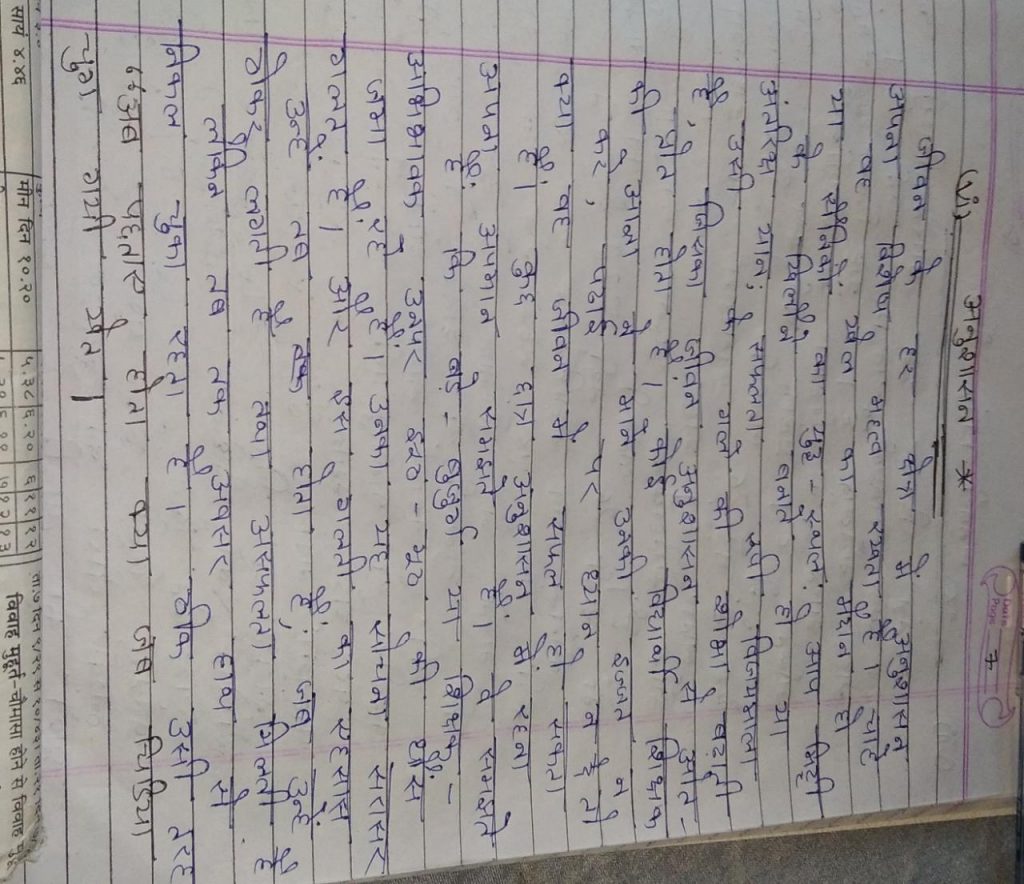 Date
Page 7
(vi) अनुशासन *
जीवन के हर क्षेत्र में अनुशासन
अपना विशेष महत्व रखता है। चाहे
वह खेल का मैदान हो
या सैनिकों का युद्ध-स्थल; हो आप मिट्टी
के खिलौने बनाते हो या
अंतरिक्ष यान; सफलता रूपी विजयमाला
उसी के गले की शोभा बढ़ाती
है, जिसका जीवन अनुशासन से ओत-
प्रोत होता है। कोई विद्यार्थी शिक्षक
की आज्ञा न माने उसकी इज्जत न
करे, पढाई पर ध्यान न दे तो
क्या वह जीवन में सफल हो सकता
है। कुछ छात्र अनुशासन में रहना
अपना अपमान समझते हैं। वे समझते
है कि बडे-बुजुर्ग या शिक्षक-
अभिभावक उनपर झूठ-मूठ की धौंस
जमा रहे हैं। उनका यह सोचना सरासर
गलत है। और इस गलती का एहसास
उन्हें तब होता है, जब उन्हें
ठोकर लगती है तथा असफलता मिलती है
लेकिन तब तक अवसर हाथ से
निकल चुका रहता है। ठीक उसी तरह
"अब पछताए होत क्या जब चिड़िया
चुग गयी खेत।
सायं ४.५६
विवाह मुहूर्त-चौमासा होने से विवाह